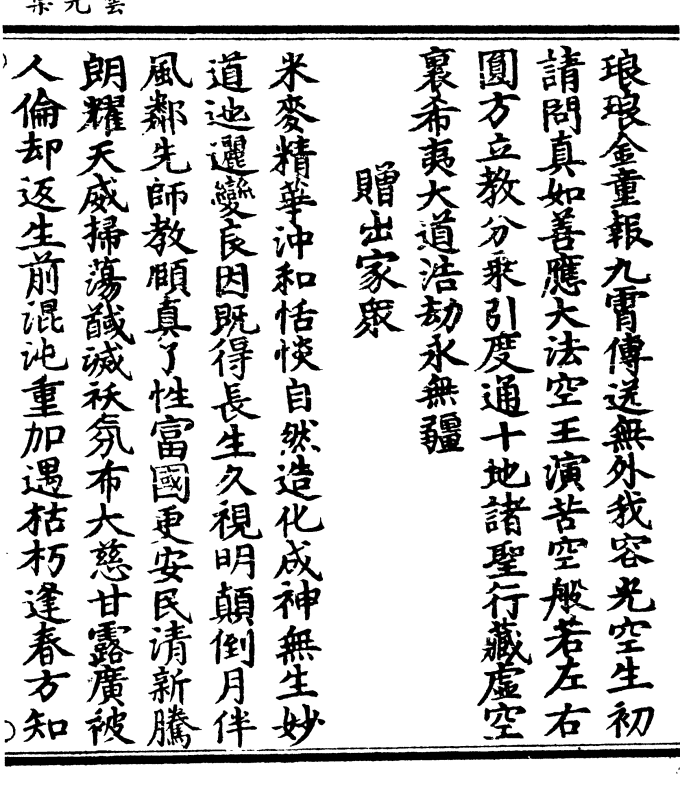 雲光集
琅琅金童報九霄傳送無外我容光空生初
請問真如善應大法空王演苦空般若左右
圓方立教分乘引度通十地諸聖行藏虛空
裏希夷大道浩劫永無疆
贈出家衆
米麥精華沖和恬惔自然造化成神無生妙
道迆邐變良因既得長生久視明顛倒月伴
風鄰先師教頤真了性富國更安民清新騰
朗耀天威掃蕩馘滅祅氛布大慈甘露廣被
人倫却返生前混沌重加遇枯朽逢春方知